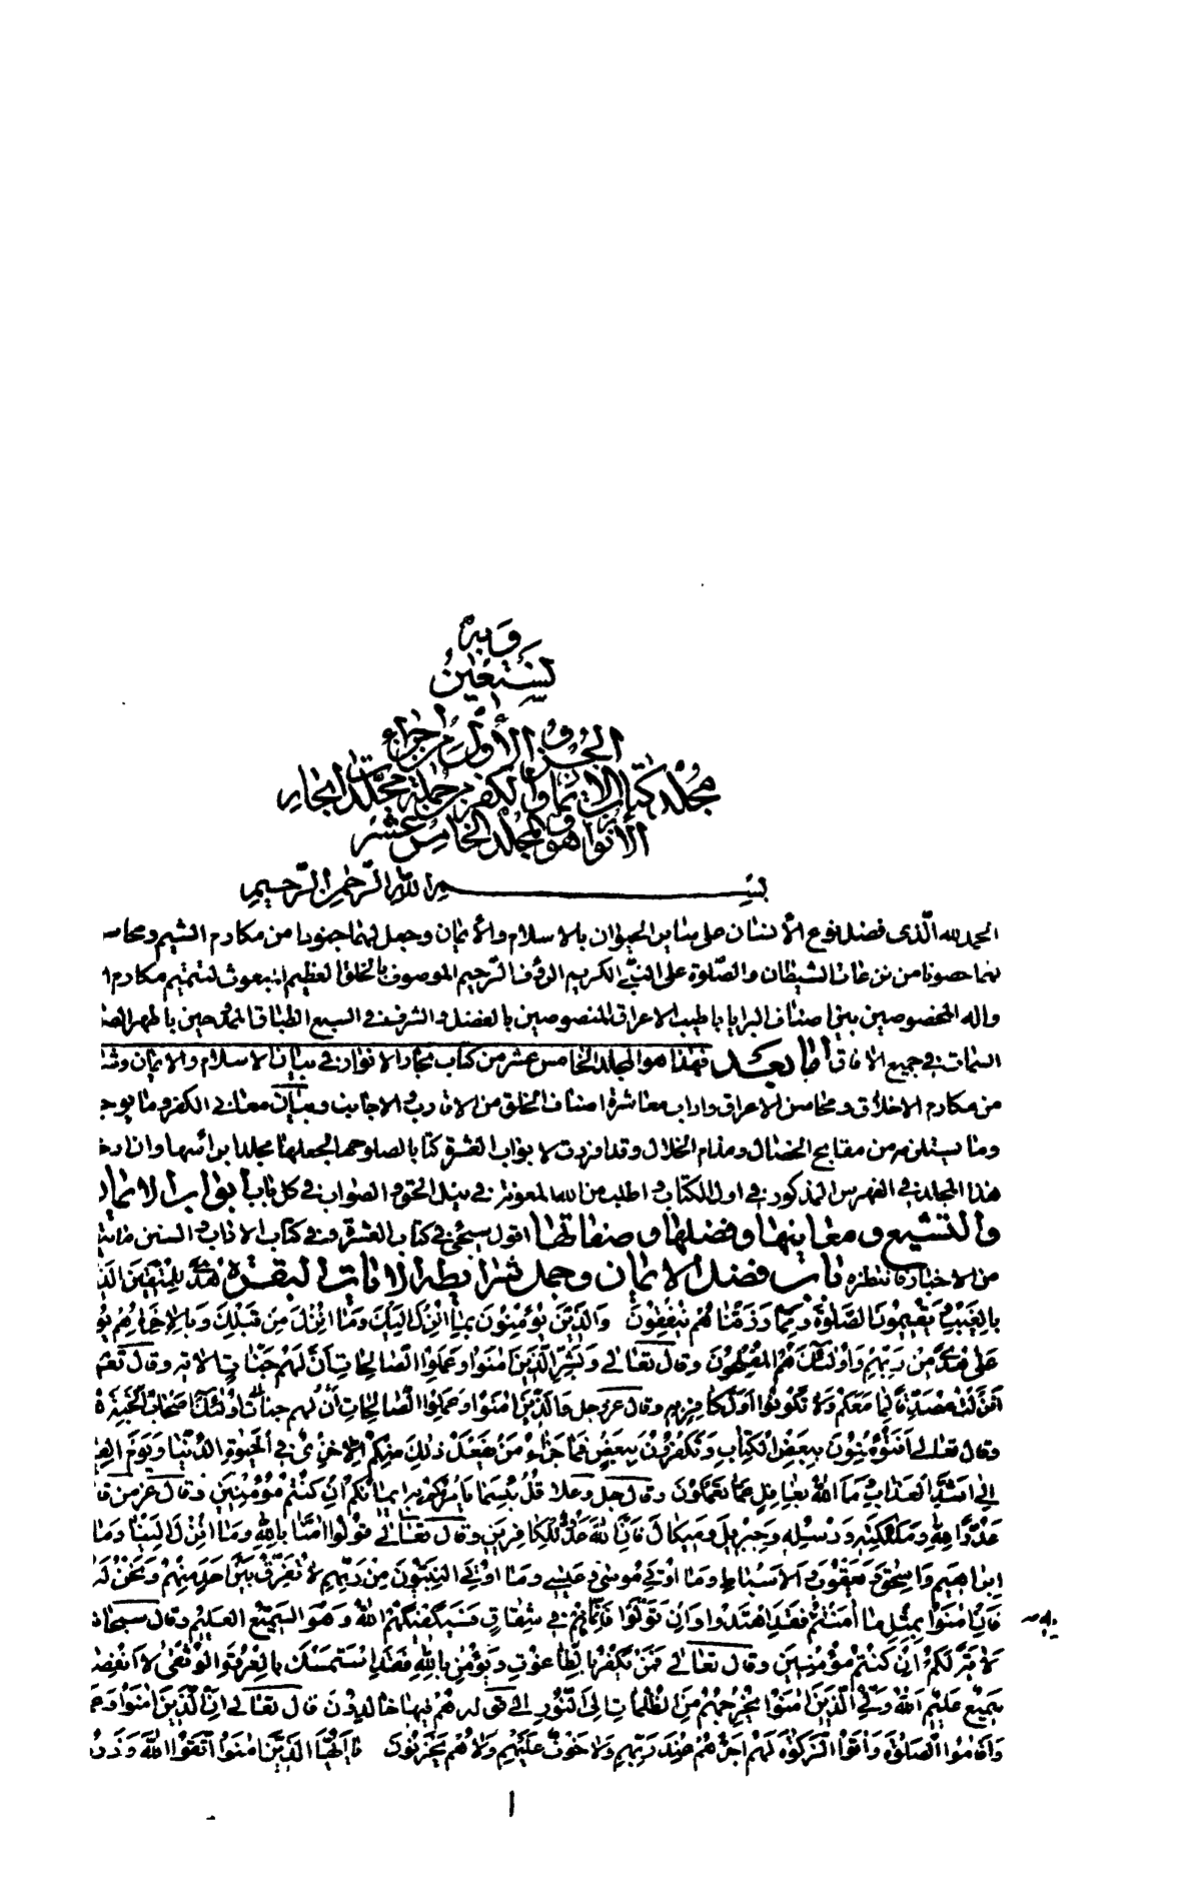 وبه
نستعين
الجزء الأول من أجزاء
مجلد كتاب الإيمان والكفر من جملة مجلدات بحار
الأنوار وهو المجلد الخامس عشر
بسم الله الرحمن الرحيم
الحمد لله الذي فضل نوع الأنسان على سائر الحيوان بالاسلام والأيمان وجعل لهما جنودا من مكارم الشيم ومحاسـ
لهما حصونا من نزغات الشيطان والصلوة على النبي الكريم الرؤف الرحيم الموصوف بالخلق العظيم المبعوث لتتميم مكارم ا
واله المخصوصين من اصناف البرايا باطيب الاعراق المنصوصين بالفضل والشرف في السبع الطباق الممدوحين باطهر الصفـ
السمات في جميع الافاق اما بعد فهذا هو المجلد الخامس عشر من كتاب بحار الانوار في بيان الاسلام والايمان وشـ
من مكارم الاخلاق ومحاسن الاعراق واداب معاشرة اصناف الخلق من الاقارب والاجانب وبيان معاني الكفر وما يوجـ
وما يستلزمه من مقابح الخصال ومذام الخلال وقد افردت لابواب العشرة كتابا لصلوحها لجعلها مجلدا برأسها وان دخـ
هذا المجلد في الفهرس المذكور في اول الكتاب واطلب من الله المعونة في نيل الحق والصواب في كل باب ابواب الايمان
والتشيع ومعانيها وفضلها وصفاتها اقول سيجئ في كتاب العشرة وفي كتاب الاداب والسنن ما يتـ
من الاخبار فانتظره باب فضل الايمان وجمل شرايطه الايات البقرة هدى للمتقين الذ
بالغيب ويقيمون الصلوة ومما رزقناهم ينفقون والذين يؤمنون بما انزل اليك وما انزل من قبلك وبالاخرة هم يو
على هدى من ربهم واولئك هم المفلحون وقال تعالى وبشر الذين امنوا وعملوا الصالحات ان لهم جنات الاية وقال تعـ
انزلت مصدقا لما معكم ولا تكونوا اول كافر به وقال عز وجل والذين امنوا وعملوا الصالحات اولئك اصحاب الجنة
وقال تعالى افتؤمنون ببعض الكتاب وتكفرون ببعض فما جزاء من يفعل ذلك منكم الا خزي في الحيوة الدنيا ويوم القيـ
الى اشد العذاب وما الله بغافل عما تعملون وقال جل وعلا قل بئسما يأمركم به ايمانكم ان كنتم مؤمنين وقال عز من قا
عدوا لله وملئكته ورسله وجبريل وميكال فان الله عدو للكافرين وقال تعالى قولوا امنا بالله وما انزل الينا وما
ابراهيم واسحق ويعقوب والاسباط وما اوتي موسى وعيسى وما اوتي النبيون من ربهم لا نفرق بين احد منهم ونحن له
فان امنوا بمثل ما امنتم به فقد اهتدوا وان تولوا فانما هم في شقاق فسيكفيكهم الله وهو السميع العليم وقال سبحانه
لاية لكم ان كنتم مؤمنين وقال تعالى فمن يكفر بالطاغوت ويؤمن بالله فقد استمسك بالعروة الوثقى لا انفصـ
سميع عليم الله ولي الذين امنوا يخرجهم من الظلمات الى النور الى قوله هم فيها خالدون قال تعالى ان الذين امنوا وعمـ
واقاموا الصلوة واتوا الزكوة لهم اجرهم عند ربهم ولا خوف عليهم ولا هم يحزنون يا ايها الذين امنوا اتقوا الله وذرو
١